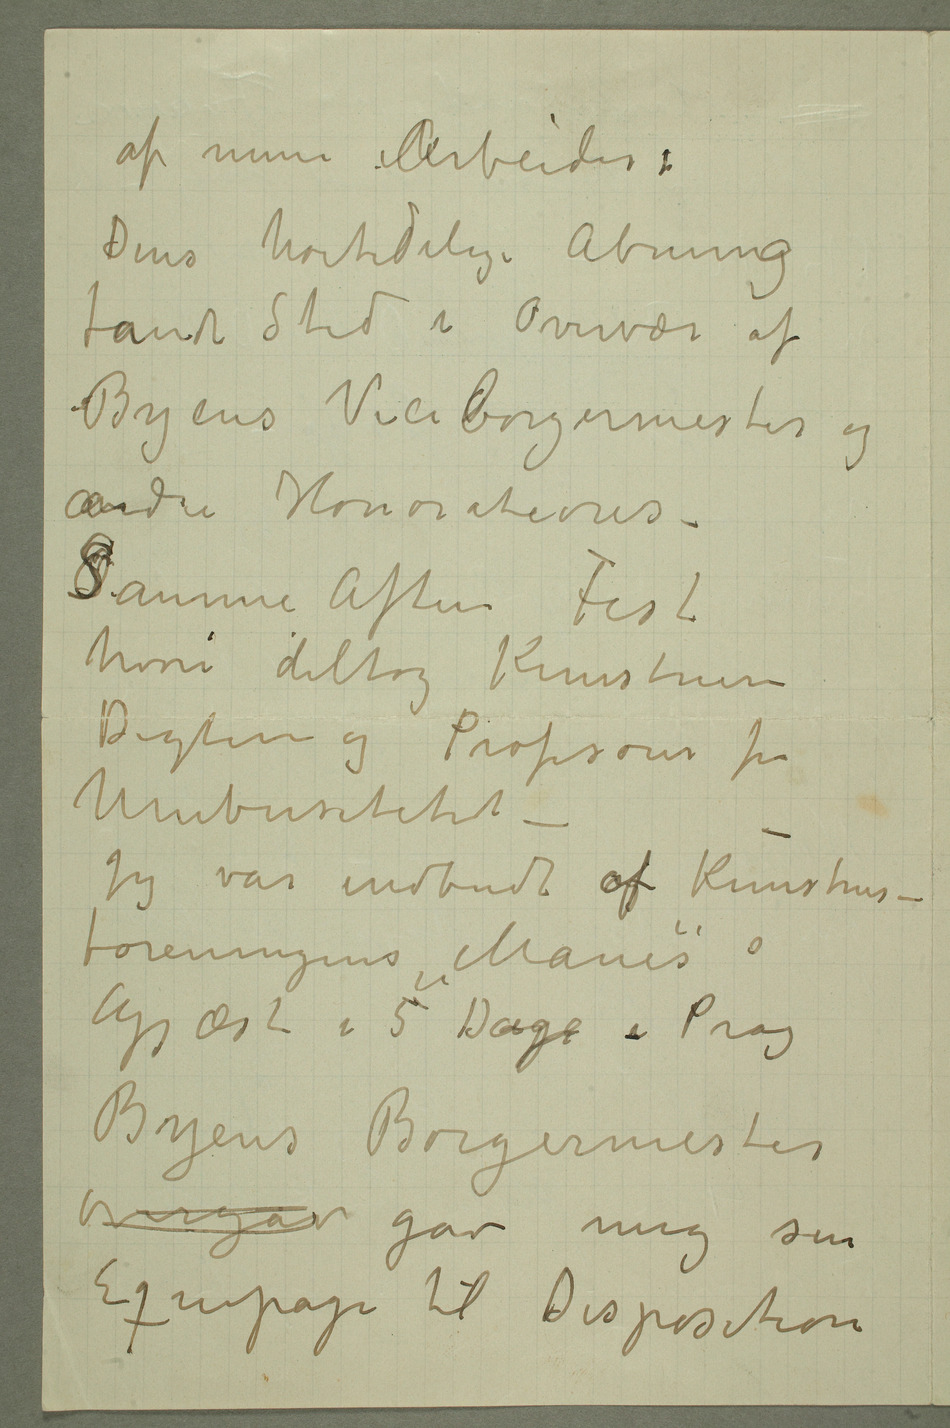 af mine Arbeider:
Dens høitidelige Abning
fandt Sted i Overvær af
Byens Viceborgermester og
andre Honoratiores –
Samme Aften Fest
hvori deltog Kunstnere
Digtere og Profesorer fra
Universitetet –
Jeg var indbudt af Kunstner–
foreningens „Manes" o
Gjæst i 5 Dage i Prag
Byens Borgermester
overgav gav mig sin
Equipage til Disposition